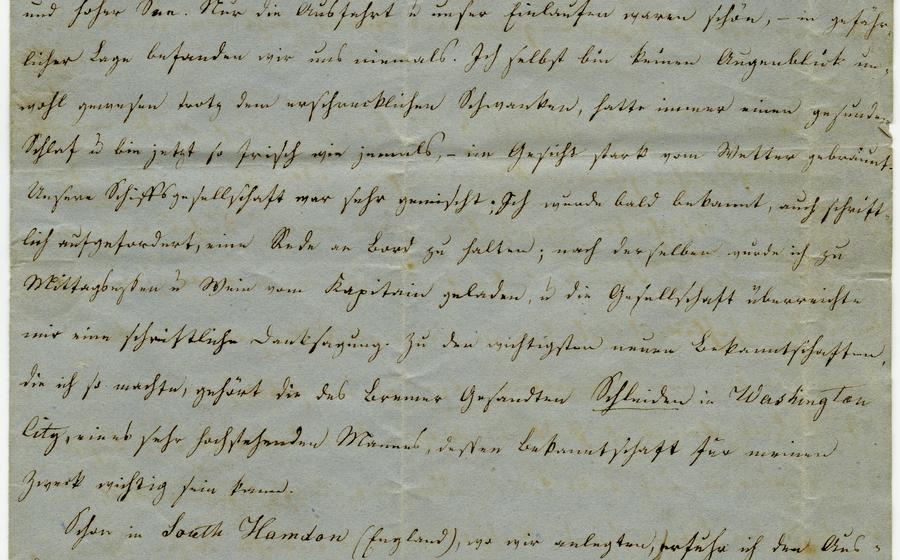 und hoher See. Nur die Ausfahrt u unser Einlaufen waren schön, – in gefähr-
licher Lage befanden wir uns niemals. Ich selbst bin keinen Augenblick un-
wohl gewesen trotz dem erschrecklichen Schwanken, hatte immer einen gesunden
Schlaf u bin jetzt so frisch wie jemals, – im Gesicht stark vom Wetter gebräunt.
Unsere Schiffsgesellschaft war sehr gemischt; Ich wurde bald bekannt, auch schrift-
lich aufgefordert, eine Rede an Bord zu halten; nach derselben wurde ich zu
Mittagsessen u Wein vom Kapitain geladen, u die Gesellschaft überreichte
mir eine schriftliche Danksagung. Zu den wichtigsten neuen Bekanntschaften,
die ich so machte, gehört die des Bremer Gesandten Schleiden in Washington
City, eines sehr hochstehenden Mannes, dessen Bekanntschaft für meinen
Zweck wichtig sein kann.
Schon in South Hamdon (England), wo wir anlegten, erfuhr ich den Aus-